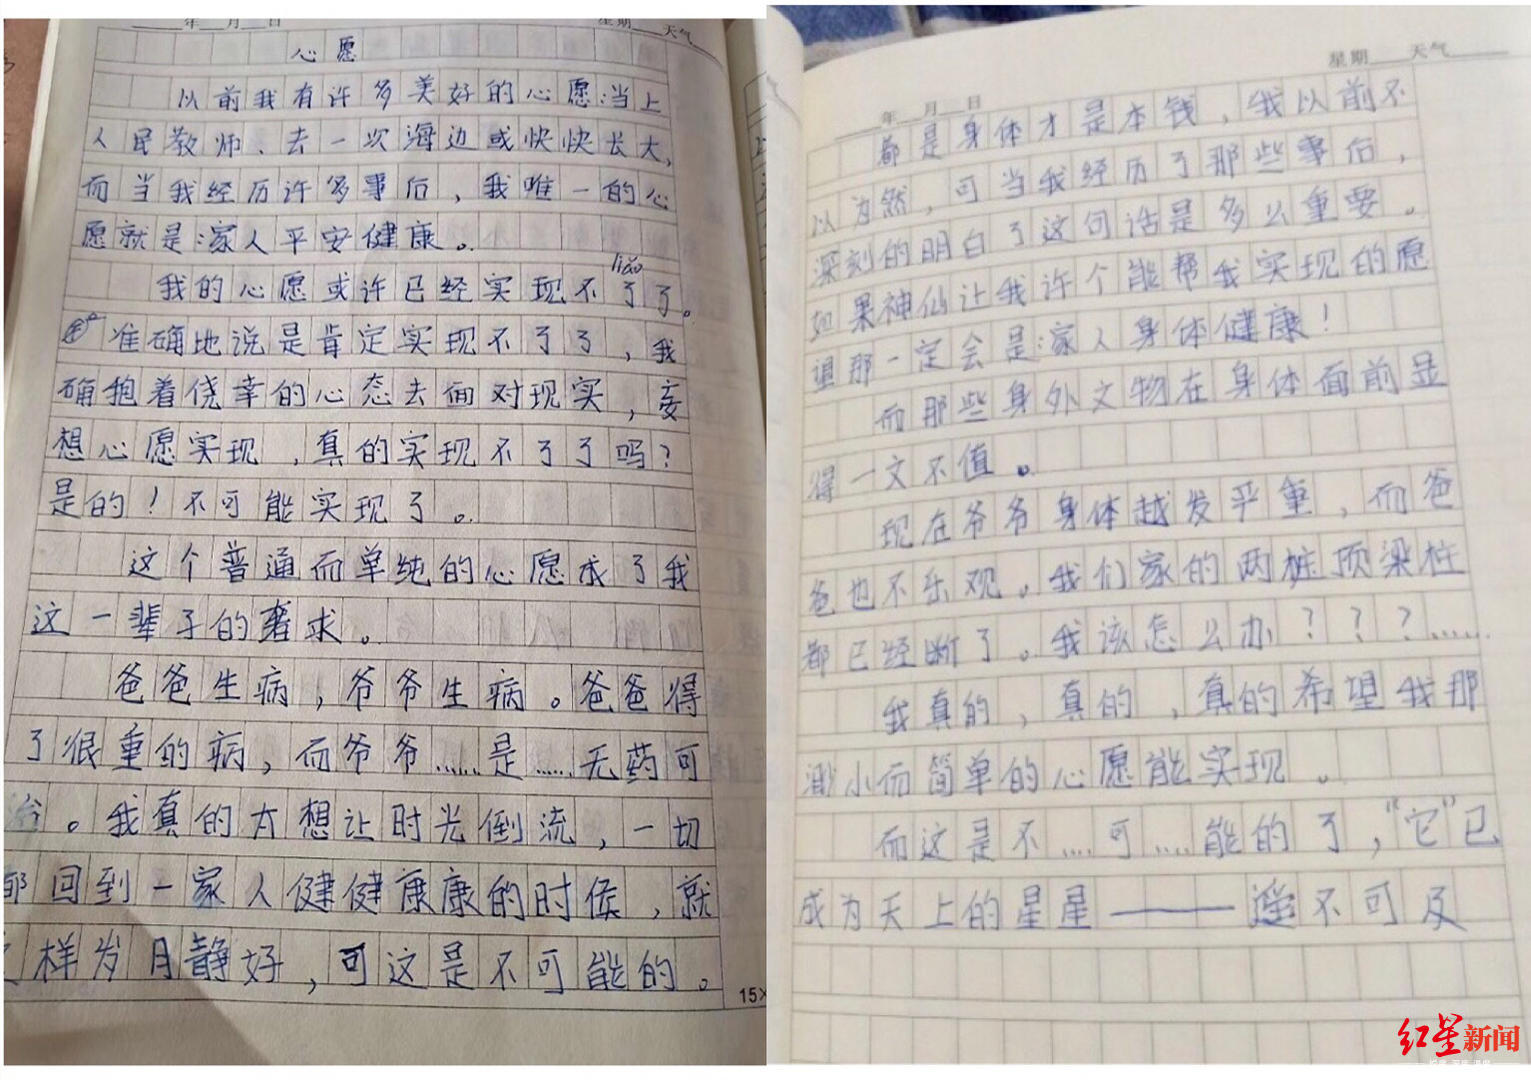 年 月 日
星期 天气
心愿
以前我有许多美好的心愿:当上
人民教师、去一次海边或快快长大,
而当我经历许多事后，我唯一的心
愿就是:家人平安健康。
liǎo
我的心愿或许已经实现不了了。
准确地说是肯定实现不了了，我
确抱着侥幸的心态去面对现实，妄
想心愿实现，真的实现不了了吗?
是的!不可能实现了。
这个普通而单纯的心愿成了我
这一辈子的奢求。
爸爸生病，爷爷生病。爸爸得
了很重的病，而爷爷……是……无药可
治。我真的太想让时光倒流，一切
都回到一家人健健康康的时侯，就
这样岁月静好，可这是不可能的。
15×
星期 天气
年 月 日
都是身体才是本钱，我以前不
以为然，可当我经历了那些事后，
深刻的明白了这句话是多么重要。
如果神仙让我许个能帮我实现的愿
望那一定会是:家人身体健康!
而那些身外文物在身体面前显
得一文不值。
现在爷爷身体越发严重，而爸
爸也不乐观。我们家的两桩顶梁柱
都已经断了。我该怎么办???……
我真的，真的，真的希望我那
渺小而简单的心愿能实现。
而这是不……可……能的了，“它”已
成为天上的星星——遥不可及
红星新闻